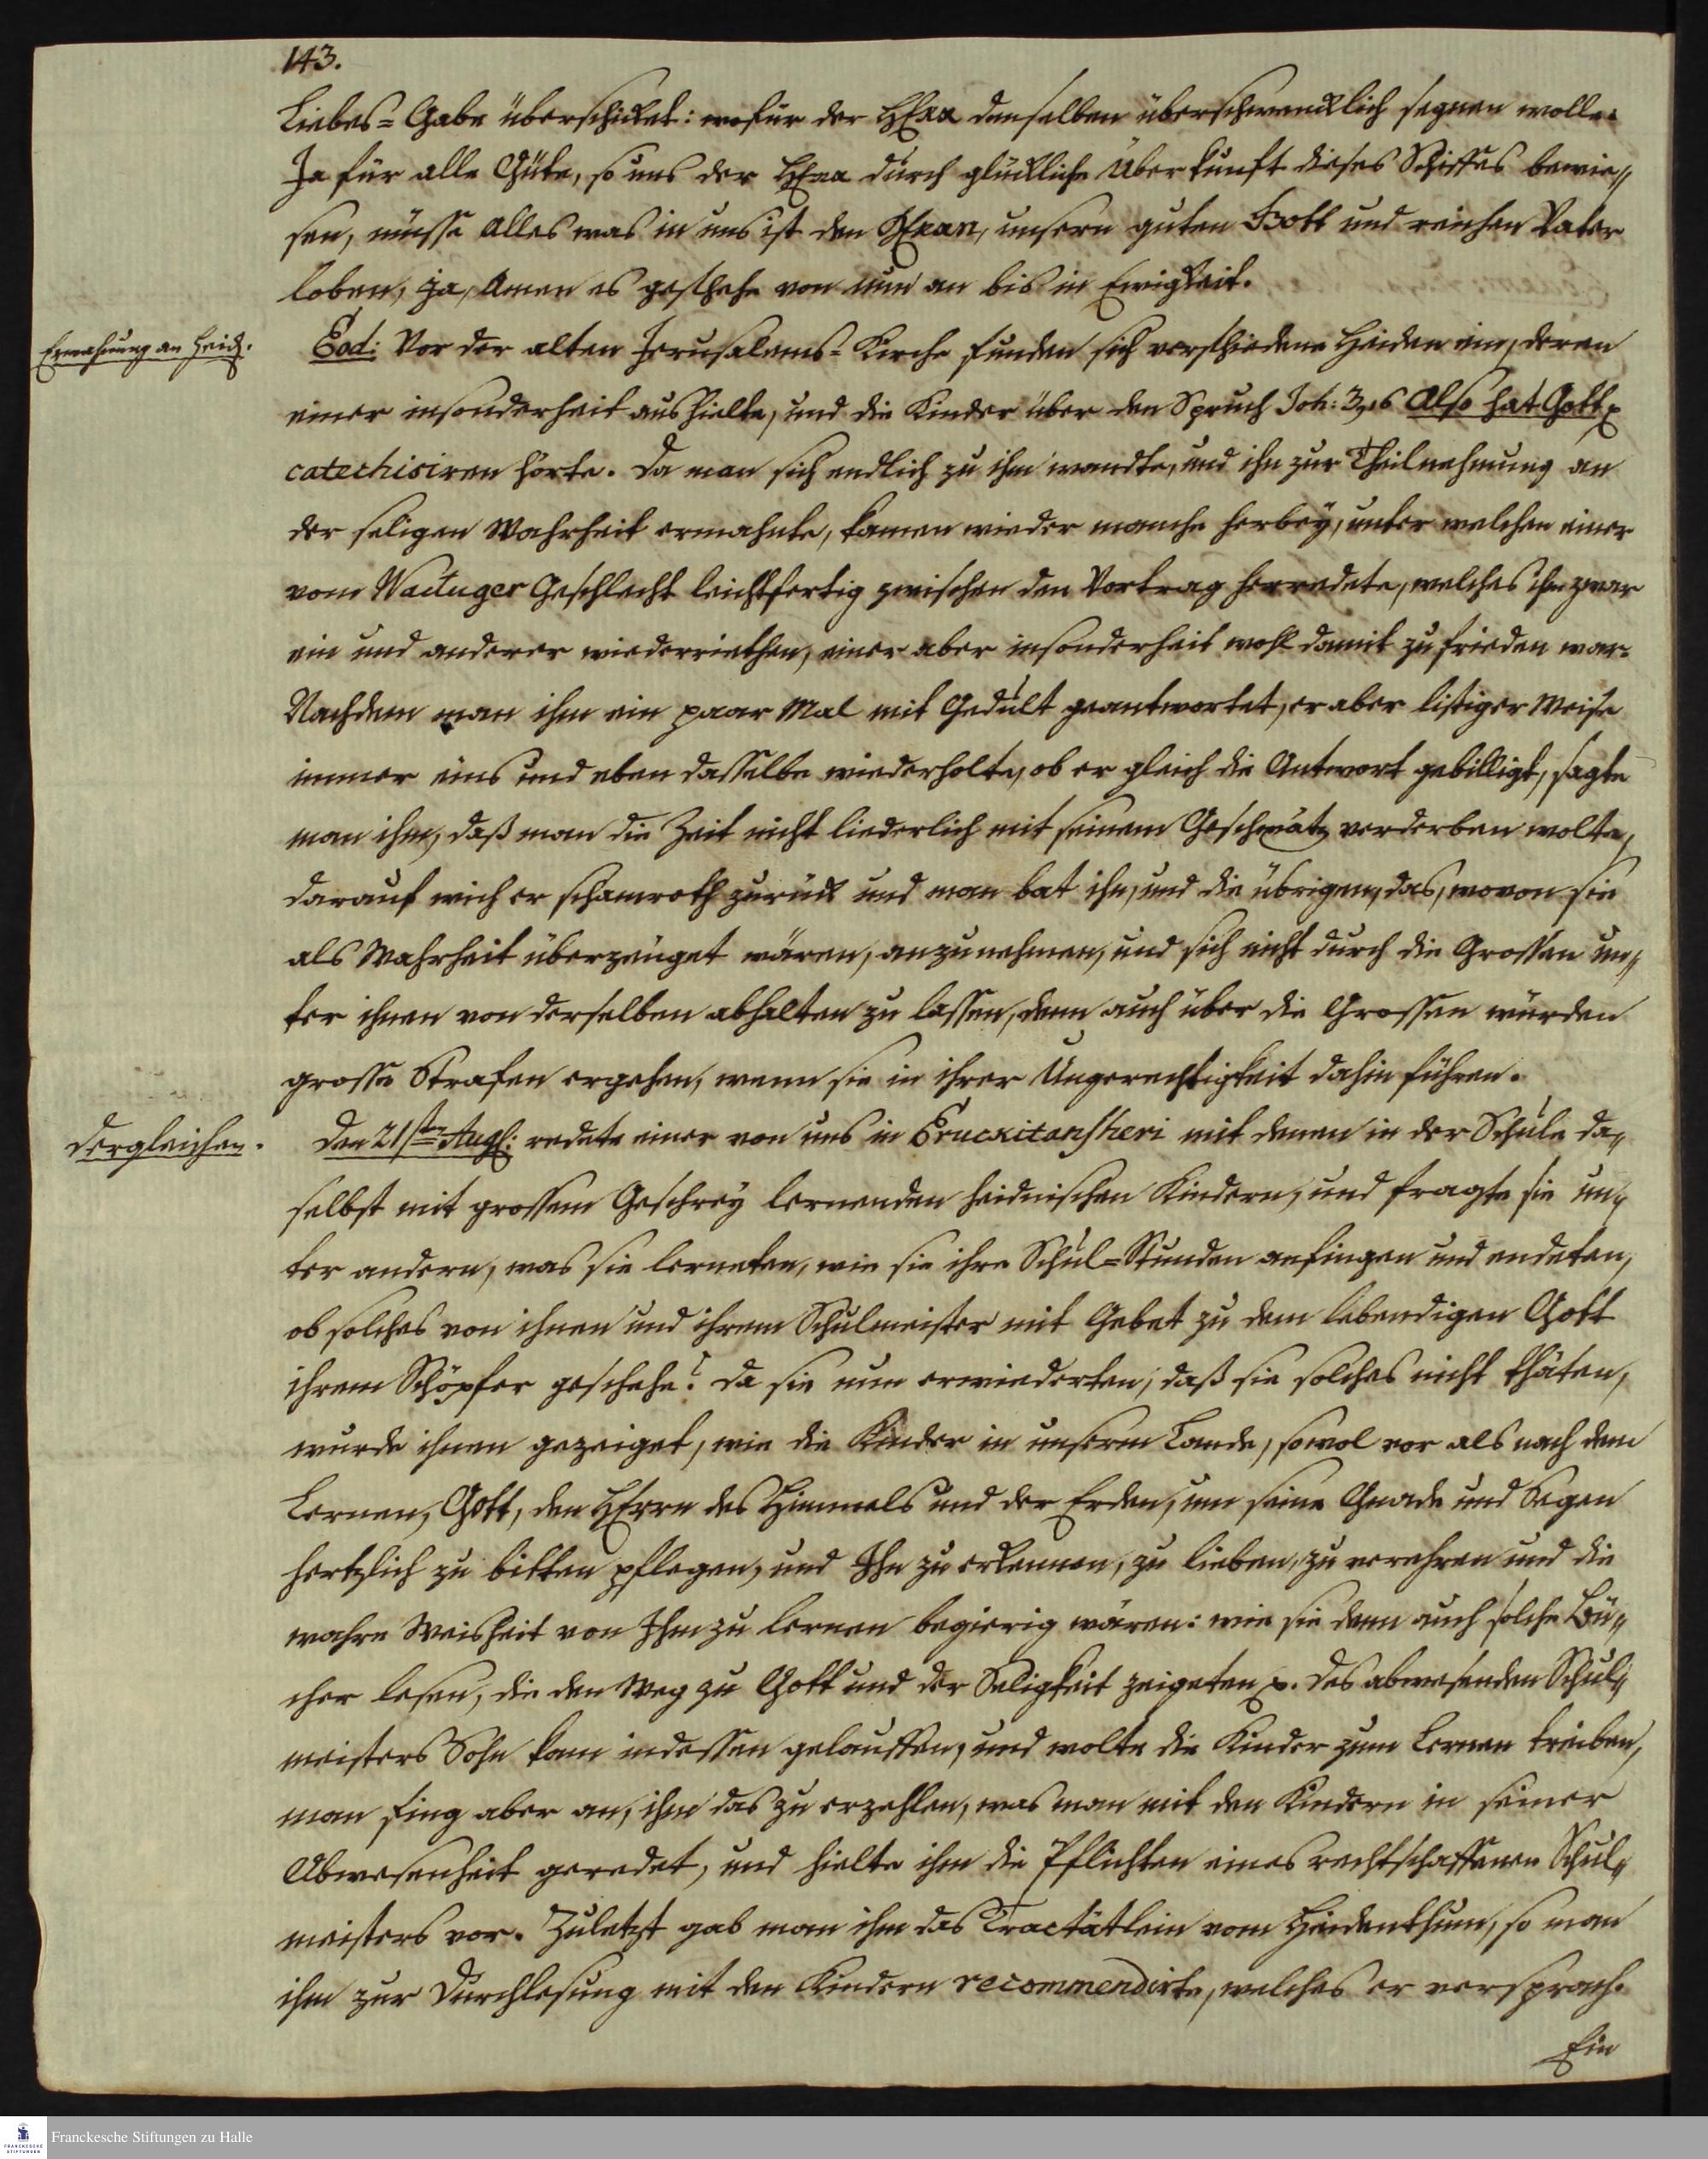 143.
Liebes-Gabe überschicket: wofür der HErr denselben überschwencklich segnen wolle.
Ja für alle Güte, so uns der HErr durch glückliche Überkunft dieses Schiffes bewie-
sen, müsse alles was in uns ist den HErrn, unsern guten Gott und reichen Vater
loben, ja, Amen es geschehe von nun an bis in Ewigkeit.
Ermahnung an Heid.
Eod: Vor der alten Jerusalems-Kirche funden sich verschiedene Heiden ein, deren
einer insonderheit aushielte, und die Kinder über den Spruch Joh: 3,16 Also hat Gott
catechisiren hörte. Da man sich endlich zu ihm wandte, und ihn zur Theilnehmung an
der seligen Wahrheit ermahnte, kamen wieder manche herbey, unter welchen einer
vom Waduger Geschlecht leichtfertig zwischen den Vortrag herredete, welches ihm zwar
ein und anderer wiederriethen, einer aber insonderheit wohl damit zufrieden war.
Nachdem man ihm ein paar Mal mit Gedult geantwortet, er aber listiger Weise
immer eins und eben dasselbe wiederholte, ob er gleich die Antwort gebilligt, sagte
man ihm, daß man die Zeit nicht liederlich mit seinem Geschwätz verderben wolte,
darauf wich er schamroth zurück und man bat ihn, und die übrigen, das, wovon sie
als Wahrheit überzeuget wären, anzunehmen, und sich nicht durch die Grossen un-
ter ihnen von derselben abhalten zu lassen, denn auch über die Grossen würden
grosse Strafen ergehen, wenn sie in ihrer Ungerechtigkeit dahin führen.
dergleichen.
Den 21sten Aug: redete einer von uns in Eruckitanscheri mit denen in der Schule da-
selbst mit grossem Geschrey lernenden heidnischen Kindern, und fragte sie un-
ter andern, was sie lerneten, wie sie ihre Schul-Stunden anfingen und endeten,
ob solches von ihnen und ihrem Schulmeister mit Gebet zu dem lebendigen Gott
ihrem Schöpfer geschehe? Da sie nun erwiederten, daß sie solches nicht thäten,
wurde ihnen gezeiget, wie die Kinder in unserm Lande, sowol vor als nach dem
Lernen, Gott, den HErrn des Himmels und der Erden, um seine Gnade und Segen
hertzlich zu bitten pflegen, und Ihn zu erkennen, zu lieben, zu verehren und die
wahre Weisheit von Ihm zu lernen begierig wären: wie sie denn auch solche Bü-
cher lesen, die den Weg zu Gott und der Seligkeit zeigeten p. Des abwesenden Schul-
meisters Sohn kam indessen gelauffen, und wolte die Kinder zum Lernen treiben,
man fing aber an, ihm das zu erzehlen, was man mit den Kindern in seiner
Abwesenheit geredet, und hielte ihm die Pflichten eines rechtschaffenen Schul-
meisters vor. Zuletzt gab man ihm das Tractätlein vom Heidenthum, so man
ihm zur Durchlesung mit den Kindern recommendirte, welches er versprach.
Ein
FRANCKESCHE STIFTUNGEN
Franckesche Stiftungen zu Halle